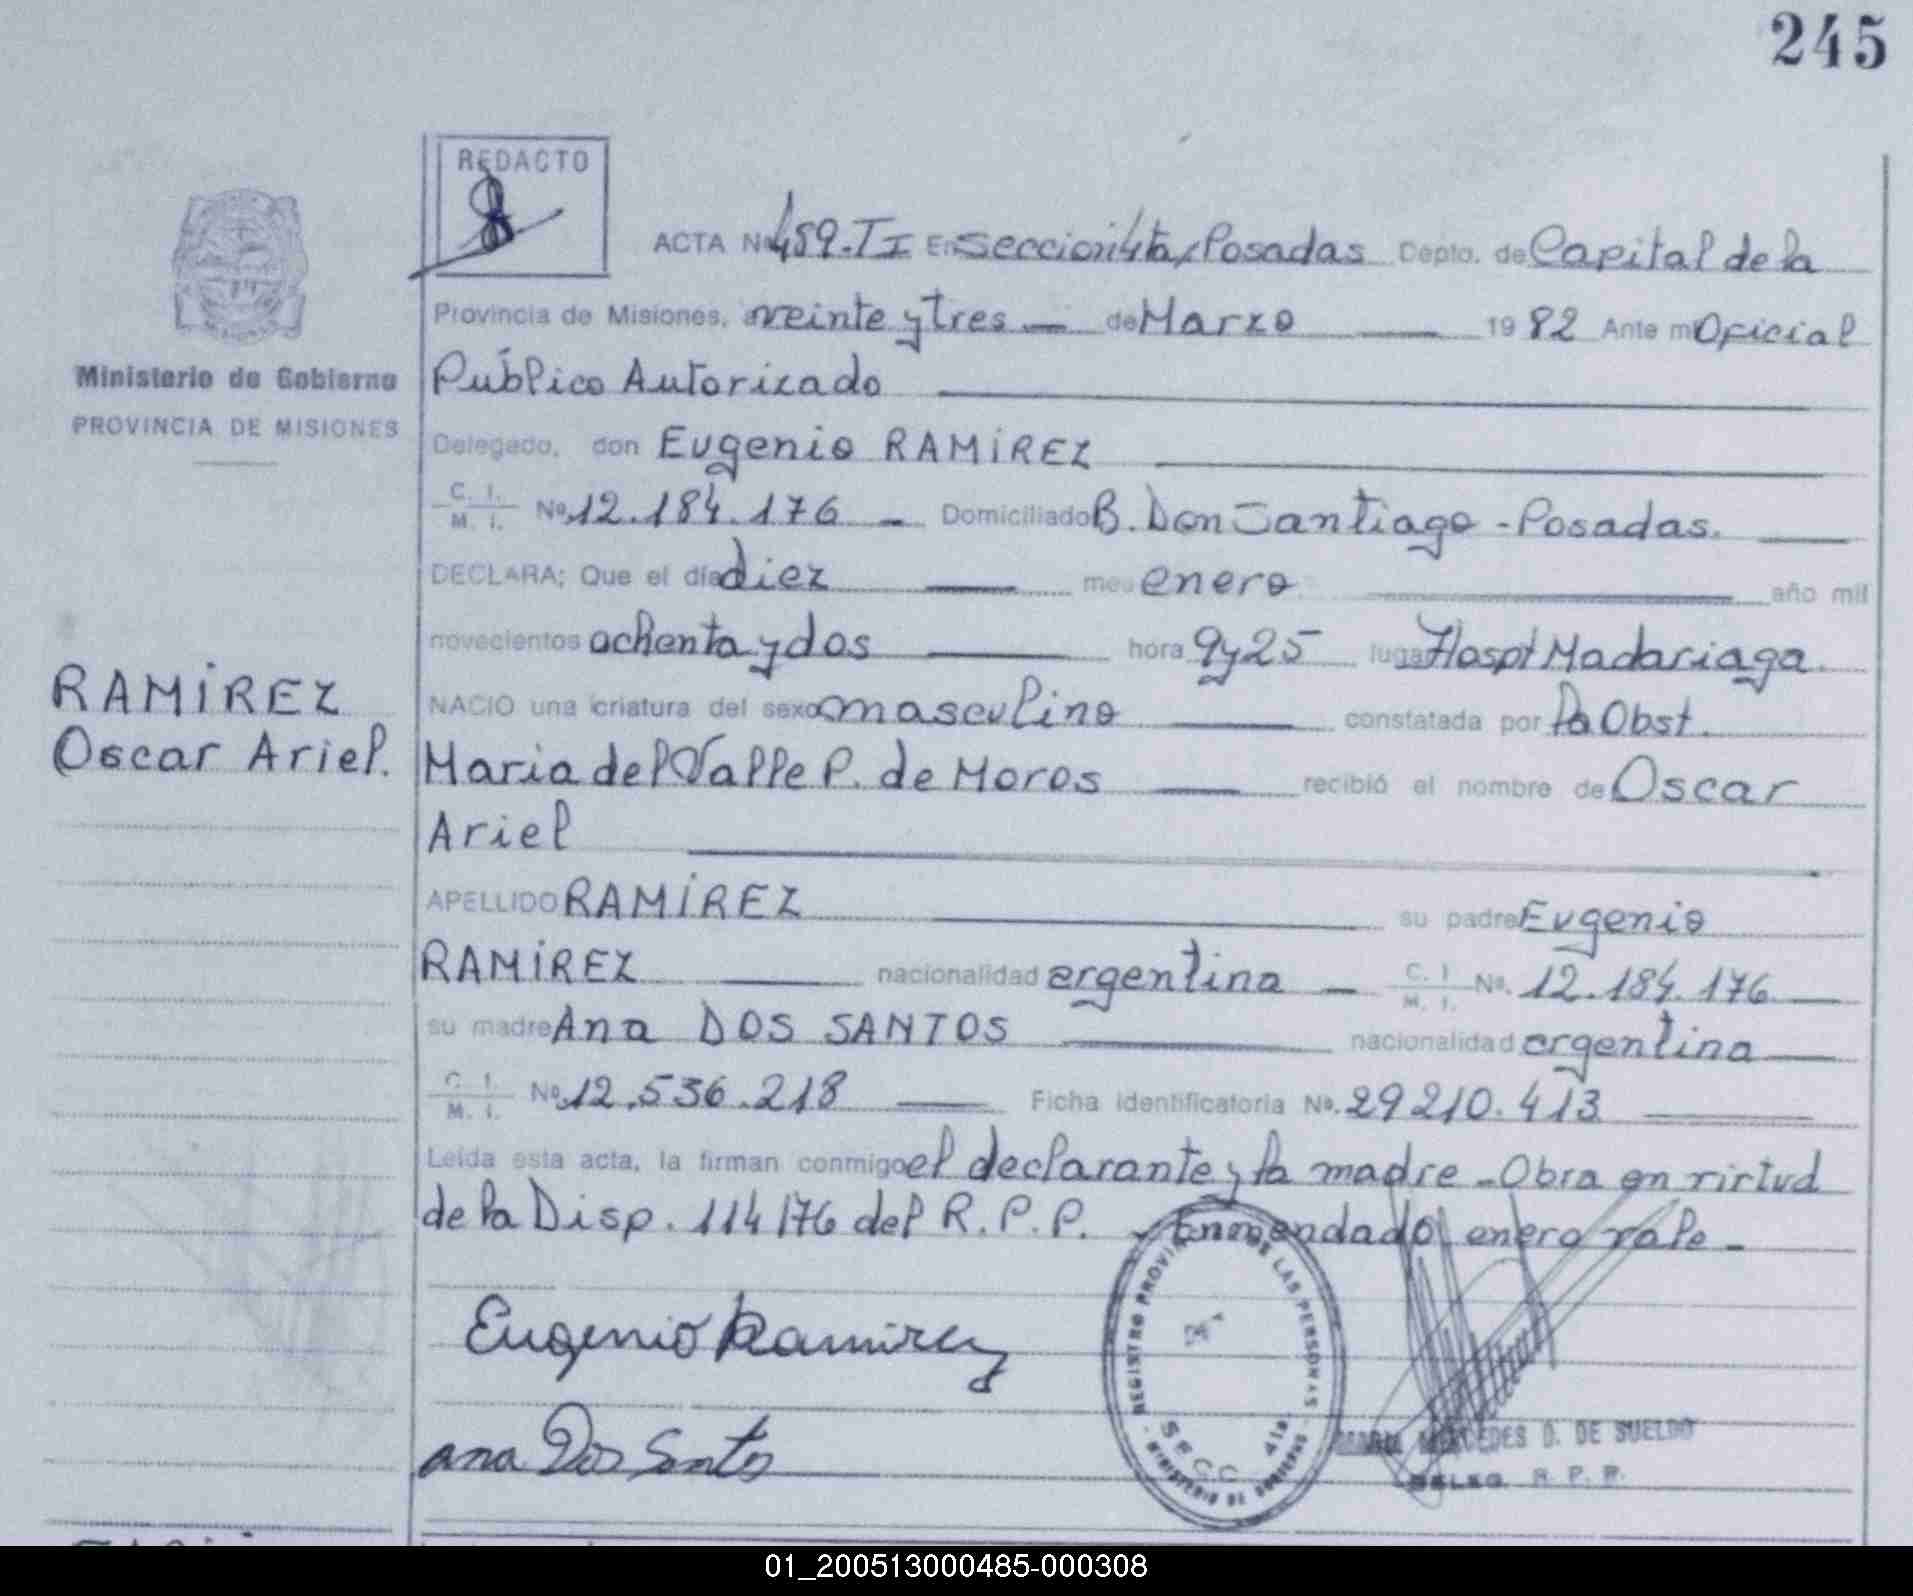 245
REDACTO
ACTA Nº 459-TI En Seccion 4ta, Posadas Depto. de Capital de la
Provincia de Misiones, a veinte y tres — de Marzo — 1982 Ante mi Oficial
Público Autorizado
Ministerio de Gobierno
PROVINCIA DE MISIONES
Delegado, don Eugenio RAMÍREZ
C. I. / M. I. Nº 12.184.176 — Domiciliado B. Don Santiago - Posadas.
DECLARA; Que el día diez — mes enero — año mil
novecientos ochenta y dos — hora 9 y 25 lugar Hospt Madariaga.
RAMÍREZ
Oscar Ariel.
NACIO una criatura del sexo masculino — constatada por la Obst.
Maria del Valle P. de Moros — recibió el nombre de Oscar
Ariel
APELLIDO RAMÍREZ — su padre Eugenio
RAMÍREZ — nacionalidad argentina — C. I. / M. I. Nº. 12.184.176 —
su madre Ana DOS SANTOS — nacionalidad argentina —
C. I. / M. I. Nº 12.536.218 — Ficha identificatoria Nº. 29210.413
Leida esta acta, la firman conmigo el declarante y la madre - Obra en virtud
de la Disp. 114/76 del R.P.P. - Enmendado enero vale -
Eugenio Ramirez
ana Dos Santos
REGISTRO PROVIN DE LAS PERSONAS
SECC 4ta.
MINISTERIO DE GOBIERNO
MARIA MERCEDES D. DE SUELDO
DELEG. R. P. P.
01_200513000485-000308